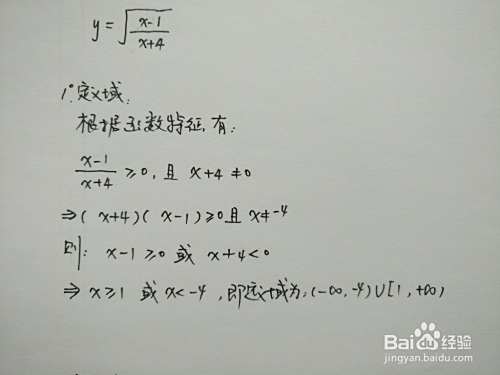 y=√((x-1)/(x+4))
1°.定义域:
根据函数特征,有:
(x-1)/(x+4) ≥0, 且 x+4≠0
⇒(x+4)(x-1)≥0且x≠-4
则: x-1≥0 或 x+4<0
⇒ x≥1 或 x<-4 ,即定义域为:(-∞,-4)∪[1,+∞)
Baidu 经验
jingyan.baidu.com